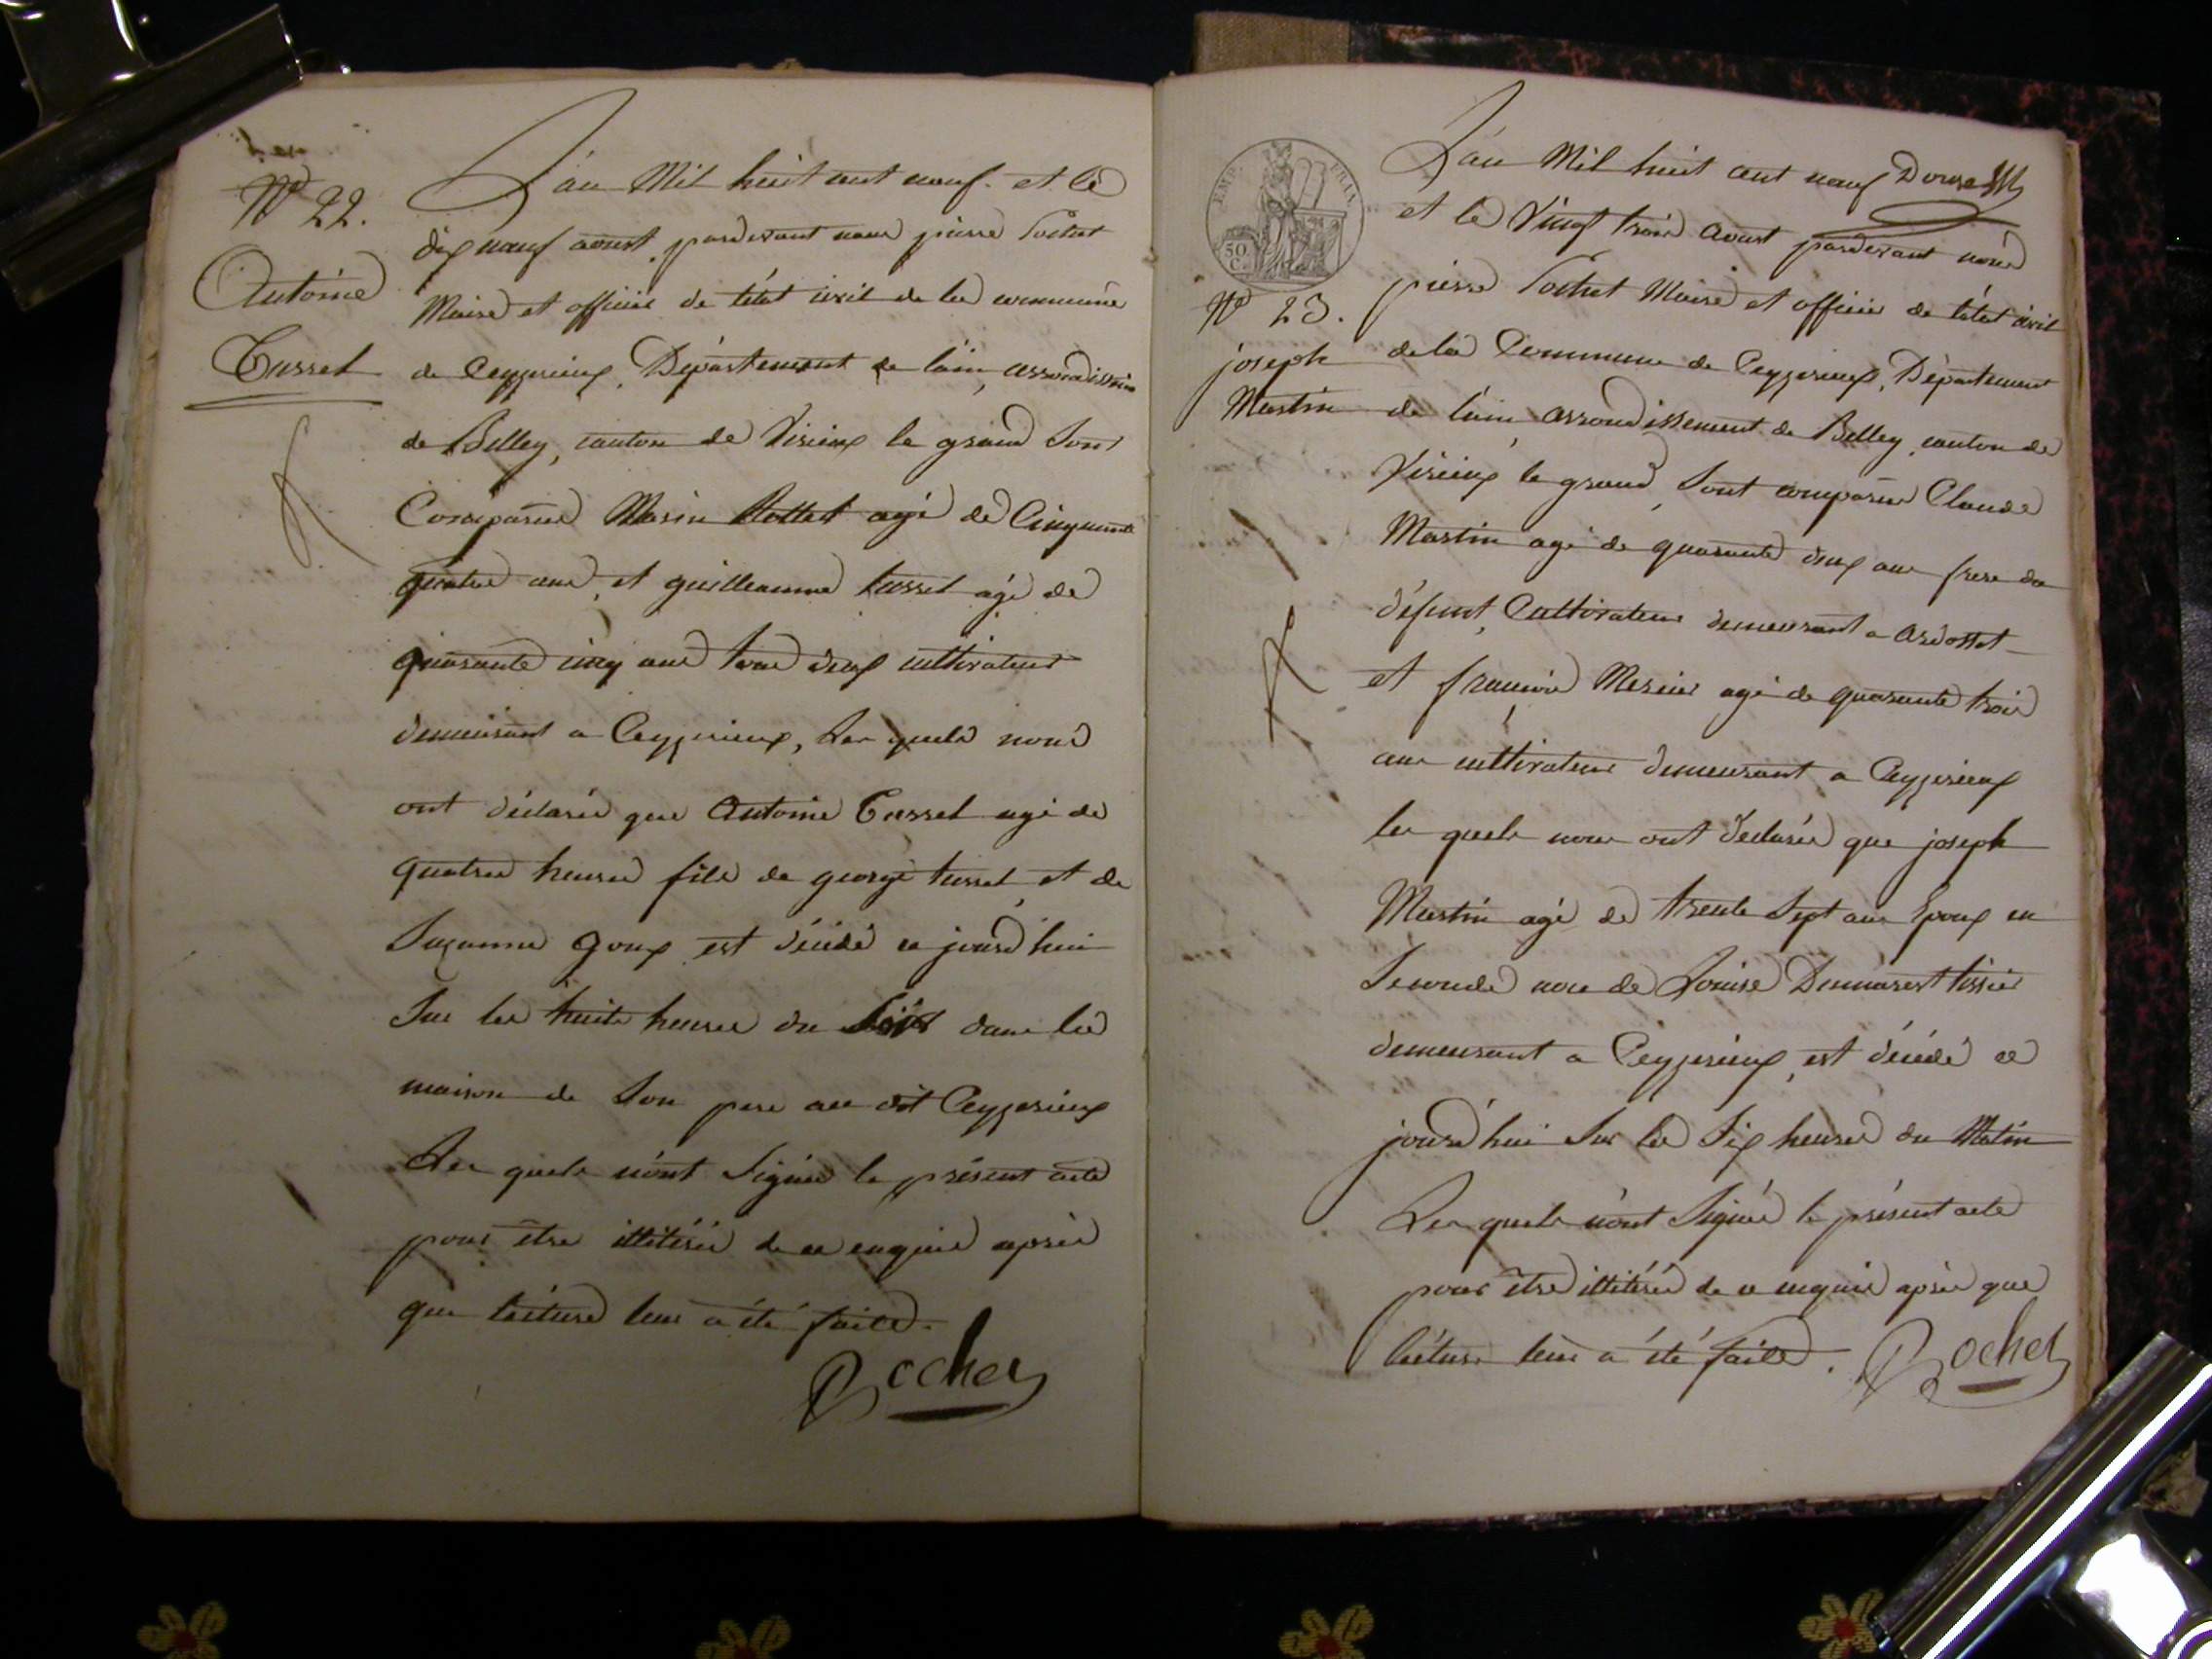 N° 22.
Antoine
Tusset
L'an Mil huit cent neuf. et le
dix neuf aoust, pardevant nous pierre Pochet
Maire et officier de l'état civil de la commune
de Ceyzerieux, Département de l'ain, arrondissem
de Belley, canton de Virieux le grand Sont
Comparus Marin Rottet agé de Cinquante
quatre ans, et guilleaume tusset agé de
quarante cinq ans tous deux cultivateurs
demeurant a Ceyzerieux, Les quels nous
ont déclarés que Antoine Tusset agé de
quatres heures fils de george tusset et de
Suzanne Goux est décédé ce jourd'hui
Sur les huits heures du Soir dans la
maison de Son pere au dit Ceyzerieux
Les quels n'ont Signés le présent acte
pour être illitérés de ce enquis après
que lecture leur a été faite.
Pochet
EMP. FRAN.
50 C.
N° 23.
joseph
Martin
L'an Mil huit cent neuf Douze
et le Vingt trois aoust pardevant nous
pierre Pochet Maire et officier de l'état civil
de la Commune de Ceyzerieux, Département
de l'ain, arrondissement de Belley, canton de
Virieux le grand, Sont comparus Claude
Martin agé de quarante deux ans frere du
défunt, Cultivateur demeurant a ardosset
et françois Mercier agé de quarante trois
ans cultivateur demeurant a Ceyzerieux
les quels nous ont déclarés que joseph
Martin agé de trente Sept ans Epoux en
Seconde noce de Louise Demarest tissier
demeurant a Ceyzerieux, est décédé ce
jourd'hui Sur les Six heures du Matin
Les quels n'ont Signés le présent acte
pour être illitérés de ce enquis après que
lecture leur a été faite. Pochet